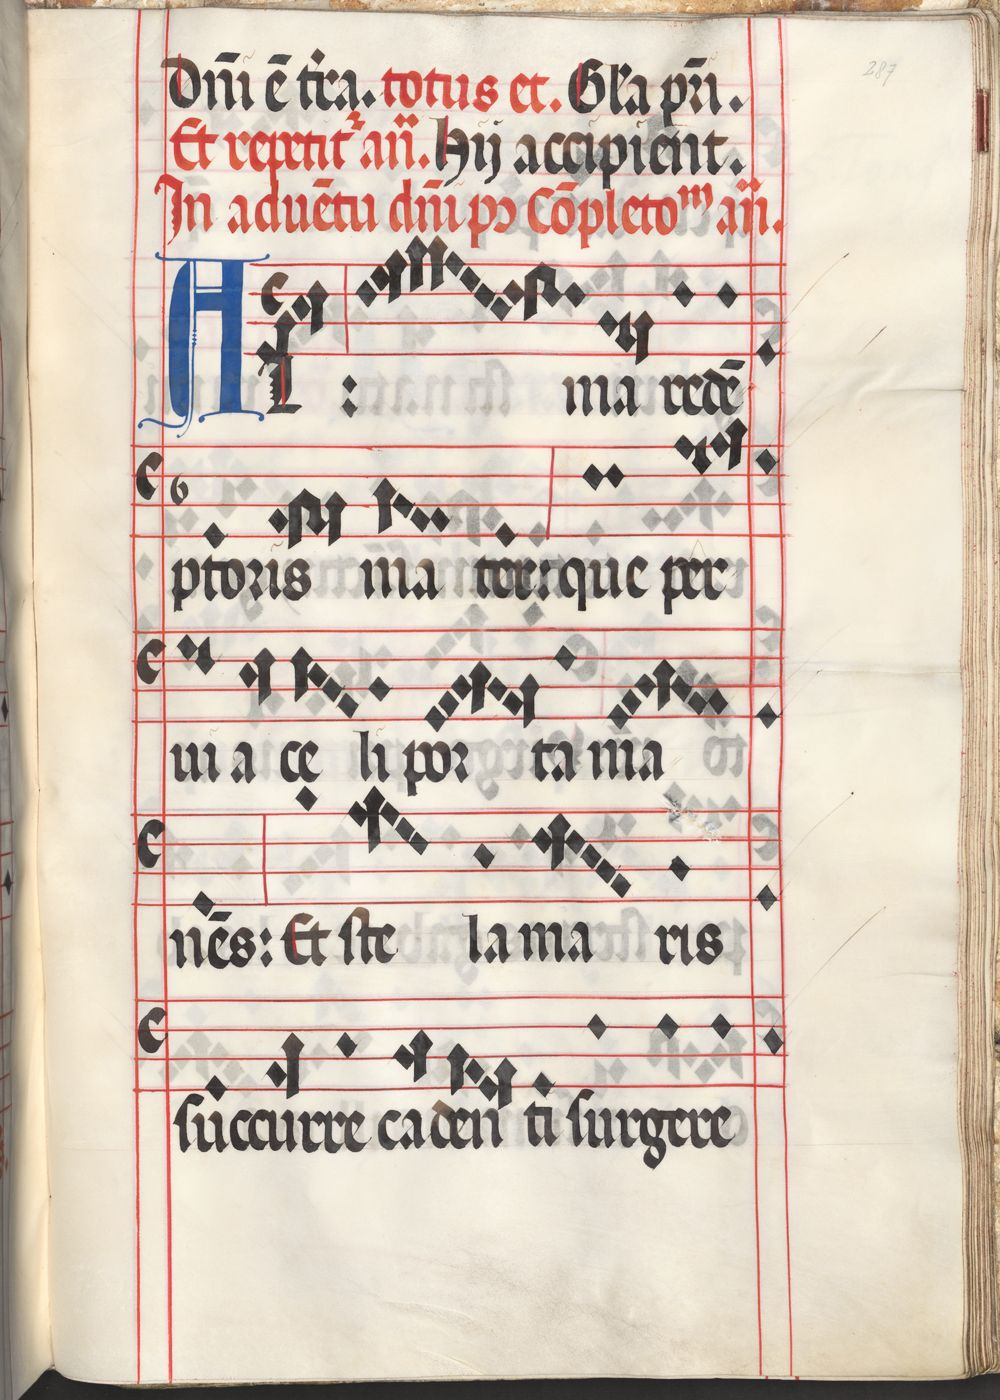 287
Dn̄i ē tr̄a. totus et. Gl̄a pr̄i.
Et repetit᷑ an̄. Hij accipient.
In aduētu dn̄i pꝰ Cōpletoᵐ an̄.
AL : ma redē
ptoris ma ter: que per
ui a cę li por ta ma
nēs: Et ste la ma ris
succurre caden ti surgere